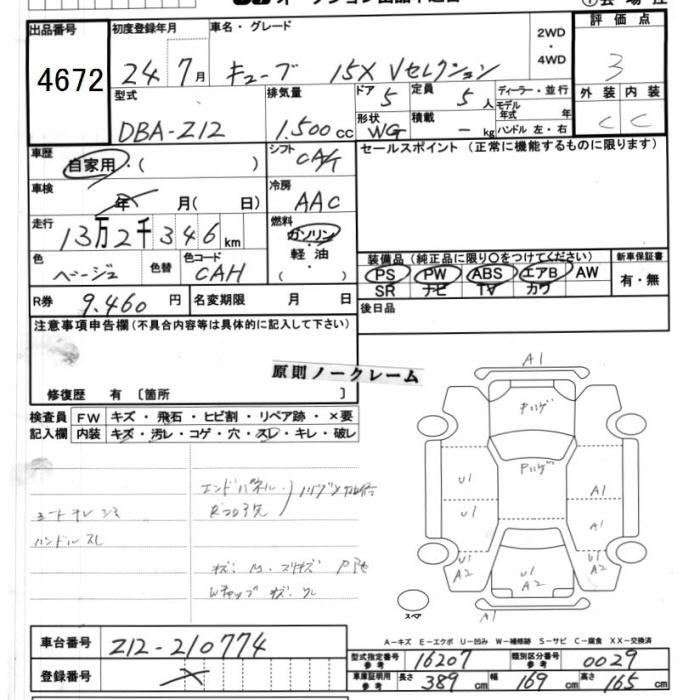 出品番号
4672
初度登録年月
24年 7月
車名・グレード
キューブ 15X Vセレクション
2WD
・
4WD
評価点
3
型式
DBA-Z12
排気量
1.500cc
ドア 5
定員 5人
形状 WG
積載 - kg
ディーラー・並行
モデル年式 年
ハンドル 左・右
外装 内装
C C
車歴
自家用・( )
シフト CA/T
セールスポイント (正常に機能するものに限ります)
車検
年 月( 日)
冷房 AAC
走行
13万2千346km
燃料
ガソリン・
軽油・
( )
色 ベージュ
色替
色コード CAH
装備品 (純正品に限り○をつけてください)
新車保証書
PS PW ABS エアB AW
有・無
SR ナビ TV カワ
R券 9.460円
名変期限 月 日
後日品
注意事項申告欄 (不具合内容等は具体的に記入して下さい)
原則ノークレーム
修復歴 有 〔箇所 〕
検査員
記入欄
FW キズ・飛石・ヒビ割・リペア跡・×要
内装 キズ・汚レ・コゲ・穴・スレ・キレ・破レ
ハンドル スレ
エンドパネル・
A1
U1
A1
U1
A1
U1
A2
U1
A2
U1
A2
A1
スペア
A-キズ E-エクボ U-凹み W-補修跡 S-サビ C-腐食 XX-交換済
車台番号
Z12-210774
登録番号
型式指定番号 参考 16207
類別区分番号 参考 0029
車庫証明用 参考 長さ 389cm 幅 169cm 高さ 165cm